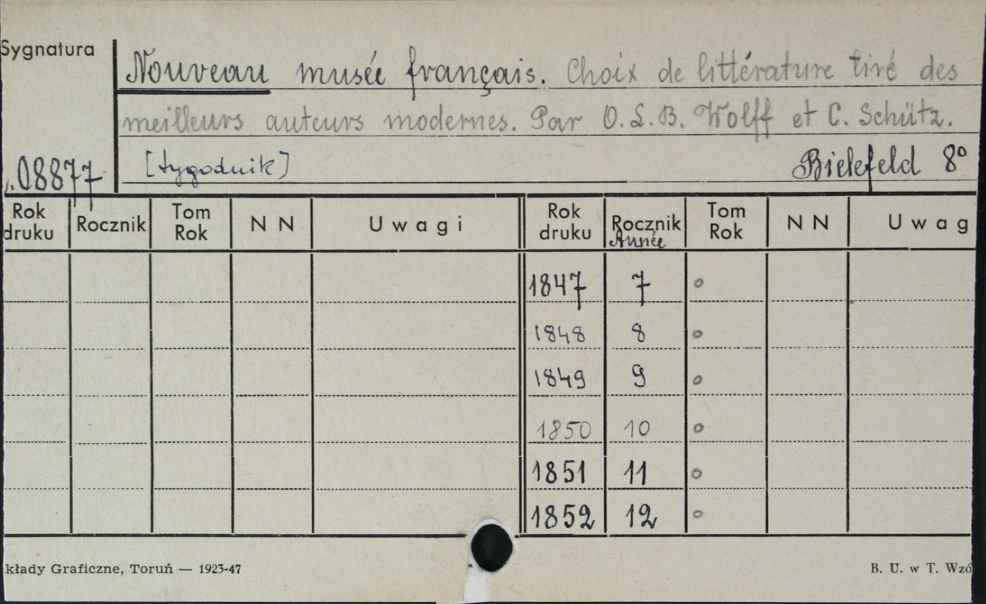 Sygnatura
Nouveau musée français. Choix de littérature tiré des
meilleurs auteurs modernes. Par O.L.B. Wolff et C. Schütz.
08877 [tygodnik] Bielefeld 8°
Rok druku Rocznik Tom Rok N N Uwagi Rok druku Rocznik Année Tom Rok N N Uwag
1847 7 o
1848 8 o
1849 9 o
1850 10 o
1851 11 o
1852 12 o
kłady Graficzne, Toruń — 1923-47 B. U. w T. Wzó